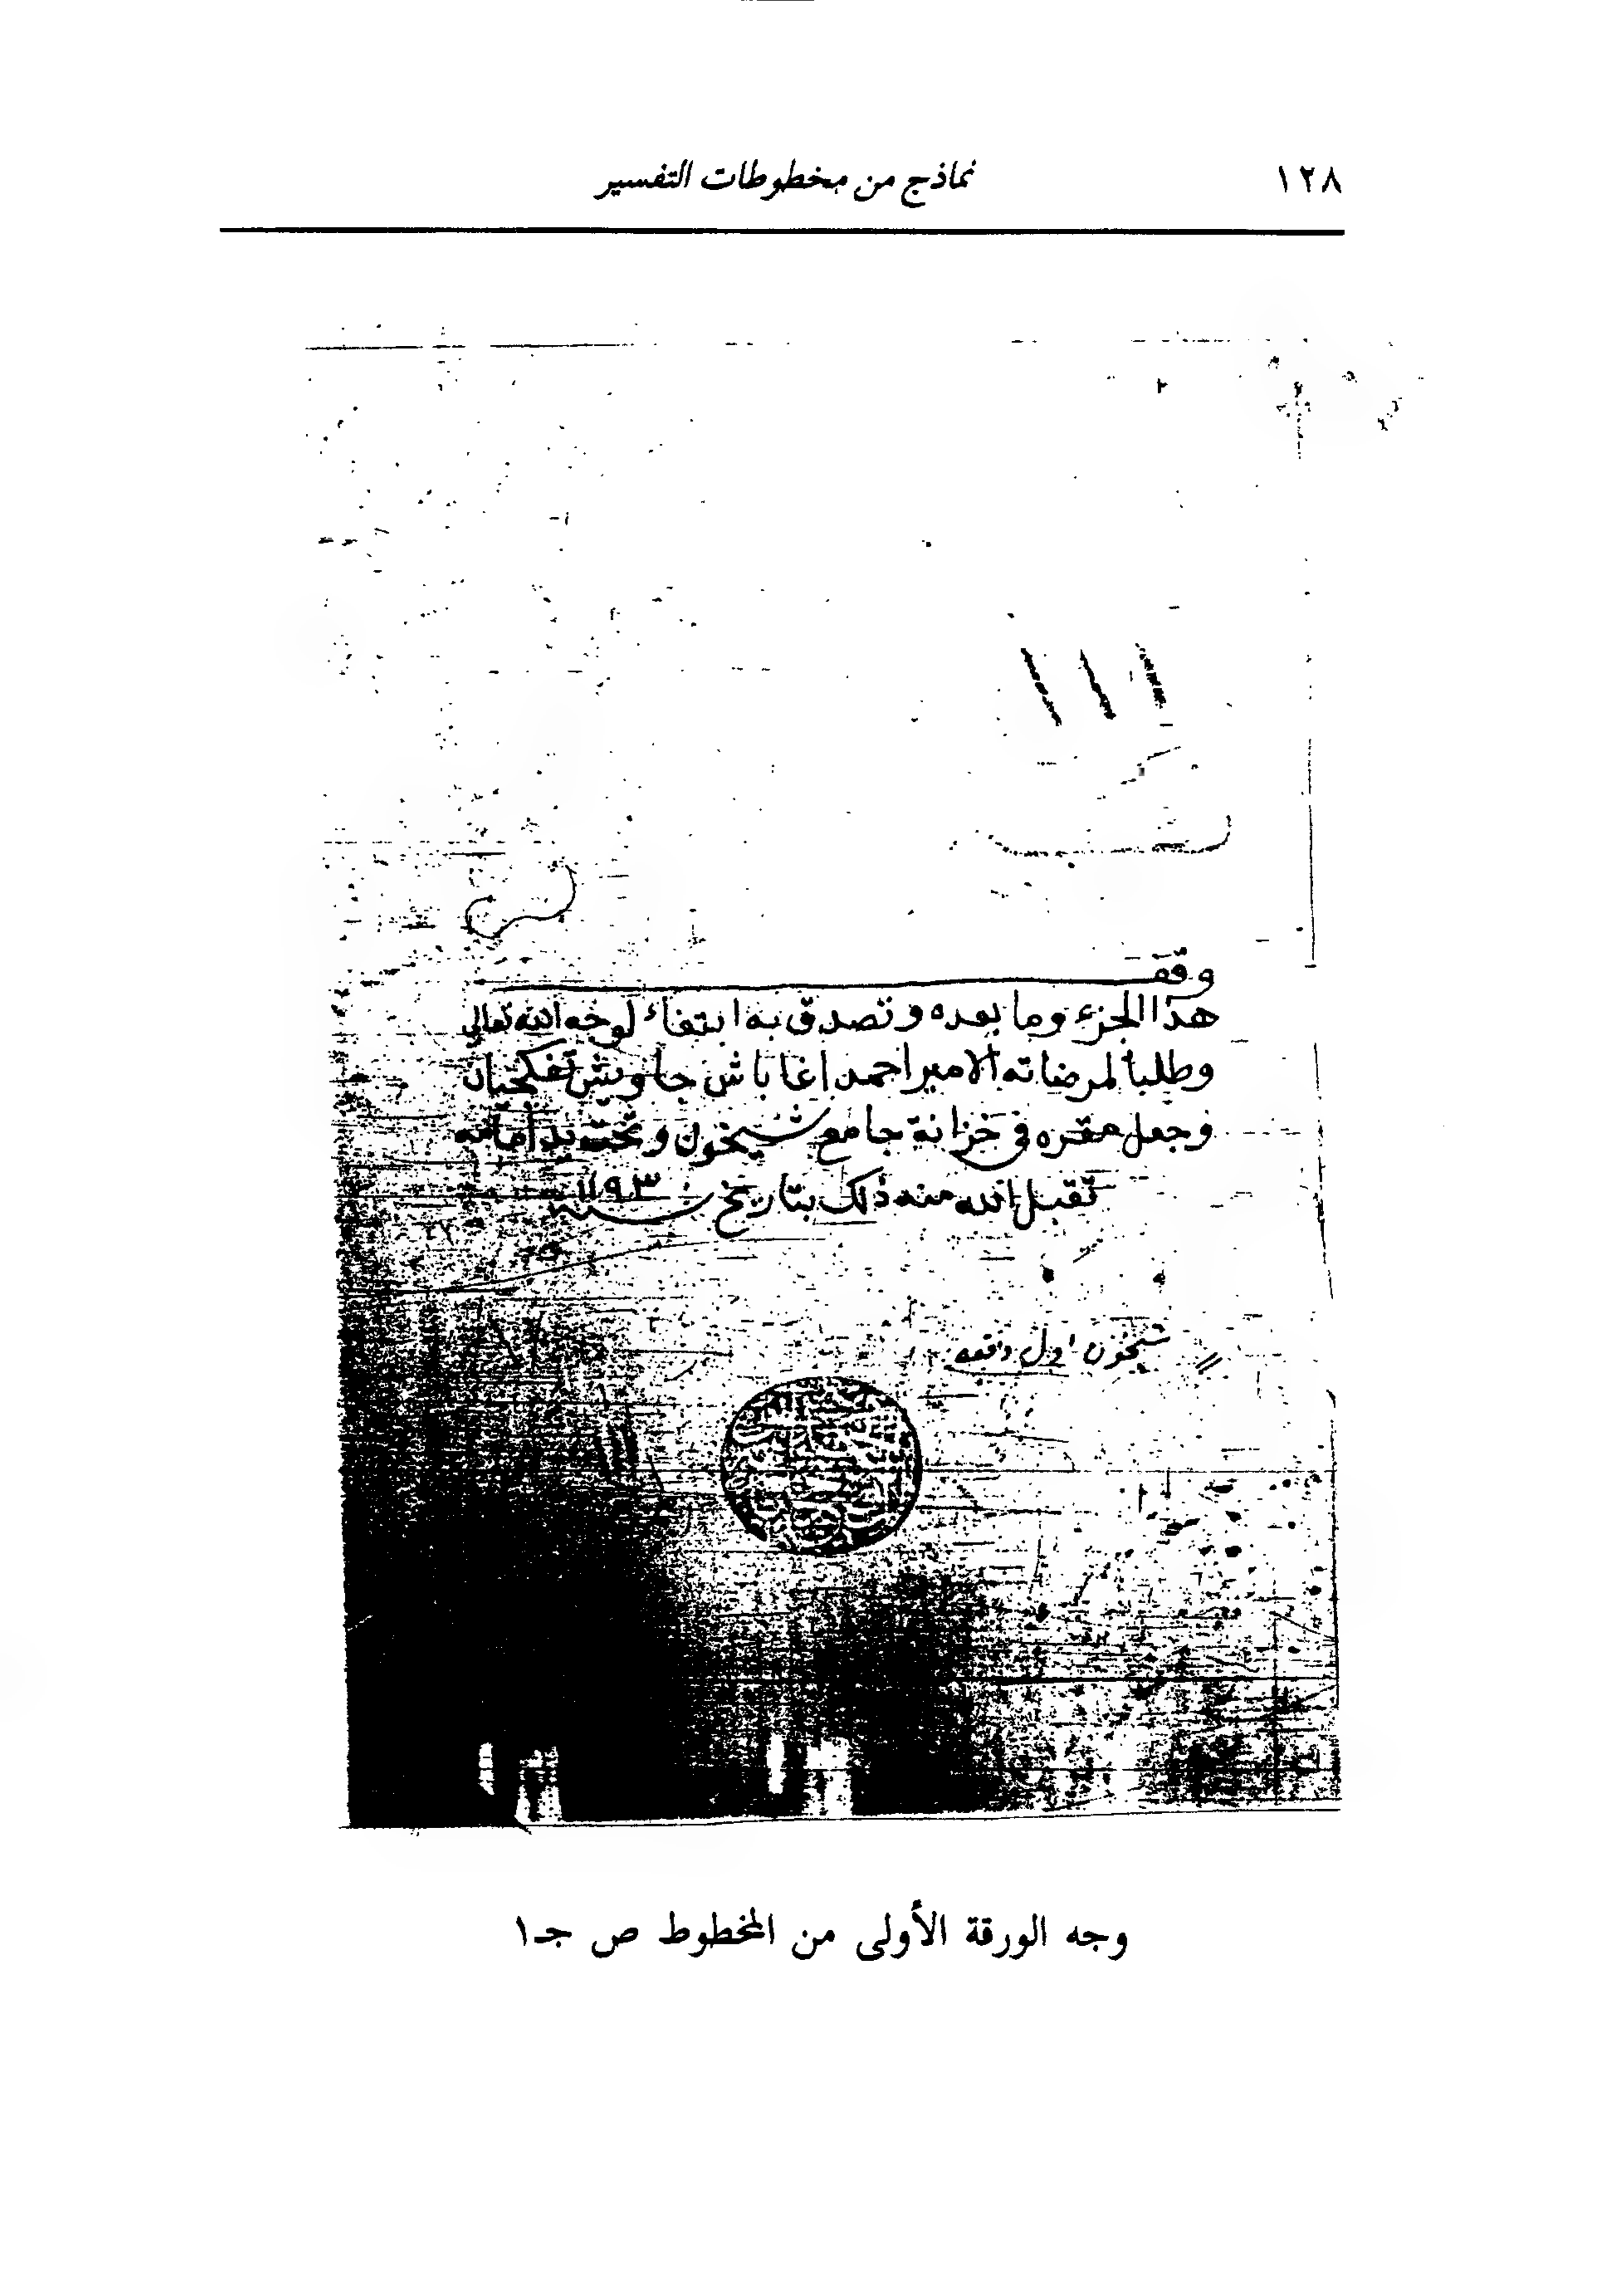 ١٢٨ نماذج من مخطوطات التفسير
١١١
وقف
هذا الجزء وما بعده وتصدق به ابتغاء لوجه الله تعالى
وطلبا لمرضاته الامير احمد اغا باش جاويش تفكجيان
وجعل مقره في خزانة جامع شيخون وتحت يد امامه
تقبل الله منه ذلك بتاريخ سنة ١١٩٣
شيخون اول
وجه الورقة الأولى من المخطوط ص جـ١